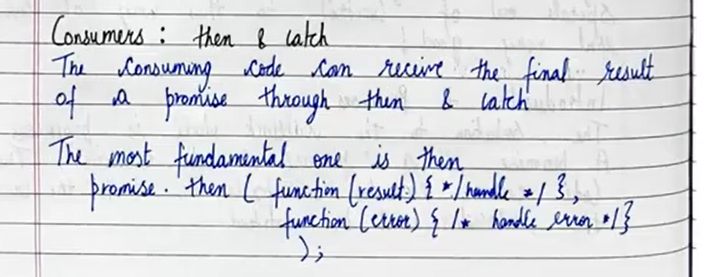 Consumers : then & catch
The consuming code can receive the final result
of a promise through then & catch
The most fundamental one is then
promise. then ( function (result) { */ handle */ },
function (error) { /* handle error */ }
);